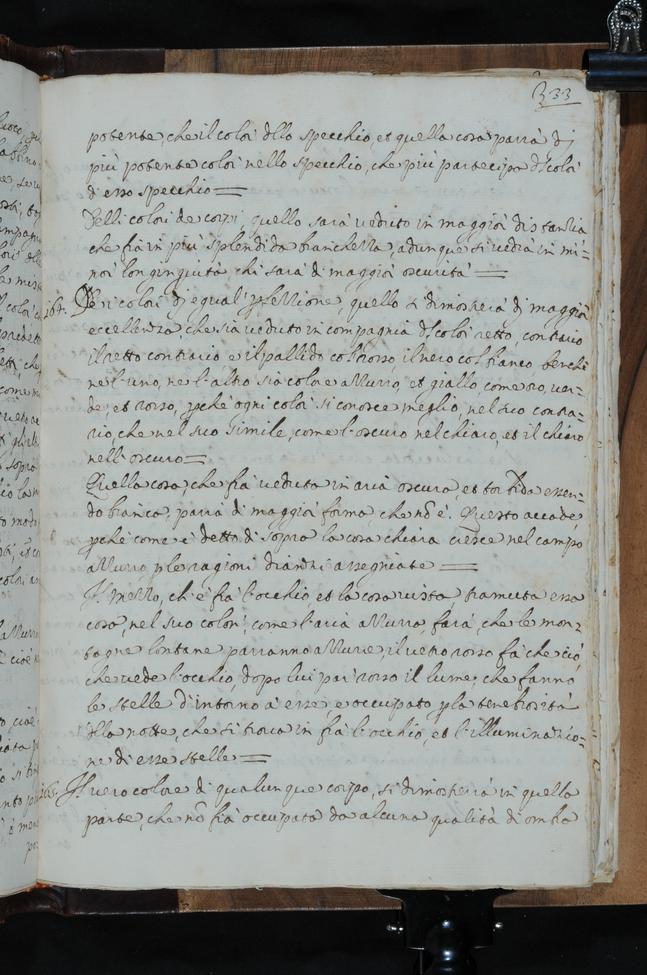 333
potente, che il color dllo specchio, et quella cosa parrà di
più potente color nello specchio, che più partecipa dl color
d'esso specchio =
Delli colori de corpi quello sarà veduto in maggior distantia
che fia in più splendida bianchezza, adunque si vedrà in mi=
nor longinquità chi sarà di maggior oscurità =
164. De i colori di equal' perfettione, quello si dimostrerà di maggior
eccellenza, che sia veduto in compagnia dl color retto, contrario
il retto contrario e il pallido col rosso, il nero col bianco, benchi
ne l'uno, ne l'altro sia colore azzurro, et giallo, come oro, ver=
de, et rosso, pchè ogni color si conosce meglio, nel suo contra=
rio, che nel suo simile, come l'oscuro nel chiaro, et il chiaro
nell'oscuro =
Quella cosa, che fia veduta in aria oscura, et torbida essen=
do bianca, parrà di maggior forma, che nō è. Questo accade
pchè come è detto di sopra la cosa chiara cresce nel campo
azzurro p le ragioni dianzi assegniate =
Il mezzo, ch'è fra l'occhio et la cosa vista, tramuta essa
cosa, nel suo color, come l'aria azzurra farà, che le mon=
tagne lontane parranno azzurre, il vetro rosso fà che ciò,
che vede l'occhio, dopo lui par rosso il lume, che fanno
le stelle d'intorno à esse, e occupato p la tenebrosità
dlla notte, che si trova in frà l'occhio, et l'illuminatio=
ne di esse stelle =
165. Il vero colore di qualunque corpo, si dimostrerà in quella
parte, che nō fia occupata da alcuna qualità di ombra